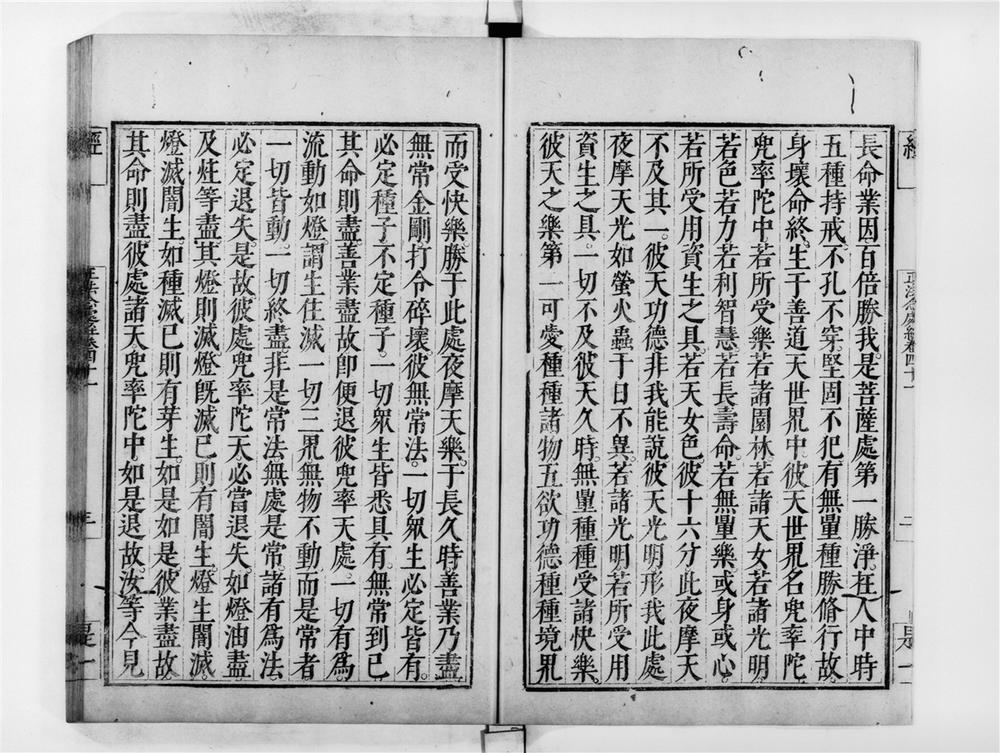 長命業因百倍勝我是菩薩處第一勝淨在人中時
五種持戒不孔不穿堅固不犯有無量種勝脩行故
身壞命終生于善道天世界中彼天世界名兜率陀
兜率陀中若所受樂若諸園林若諸天女若諸光明
若色若力若利智慧若長壽命若無量樂或身或心
若所受用資生之具若天女色彼十六分此夜摩天
不及其一彼天功德非我能說彼天光明形我此處
夜摩天光如螢火蟲于日不異若諸光明若所受用
資生之具一切不及彼天久時無量種種受諸快樂
彼天之樂第一可愛種種諸物五欲功德種種境界
而受快樂勝于此處夜摩天樂于長久時善業乃盡
無常金剛打令碎壞彼無常法一切眾生必定皆有
必定種子不定種子一切眾生皆悉具有無常到已
其命則盡善業盡故即便退彼兜率天處一切有為
流動如燈謂生住滅一切三界無物不動而是常者
一切皆動一切終盡非是常法無處是常諸有為法
必定退失是故彼處兜率陀天必當退失如燈油盡
及炷等盡其燈則滅燈旣滅已則有闇生燈生闇滅
燈滅闇生如種滅已則有芽生如是如是彼業盡故
其命則盡彼處諸天兜率陀中如是退故汝等今見
正法念處經卷四十一